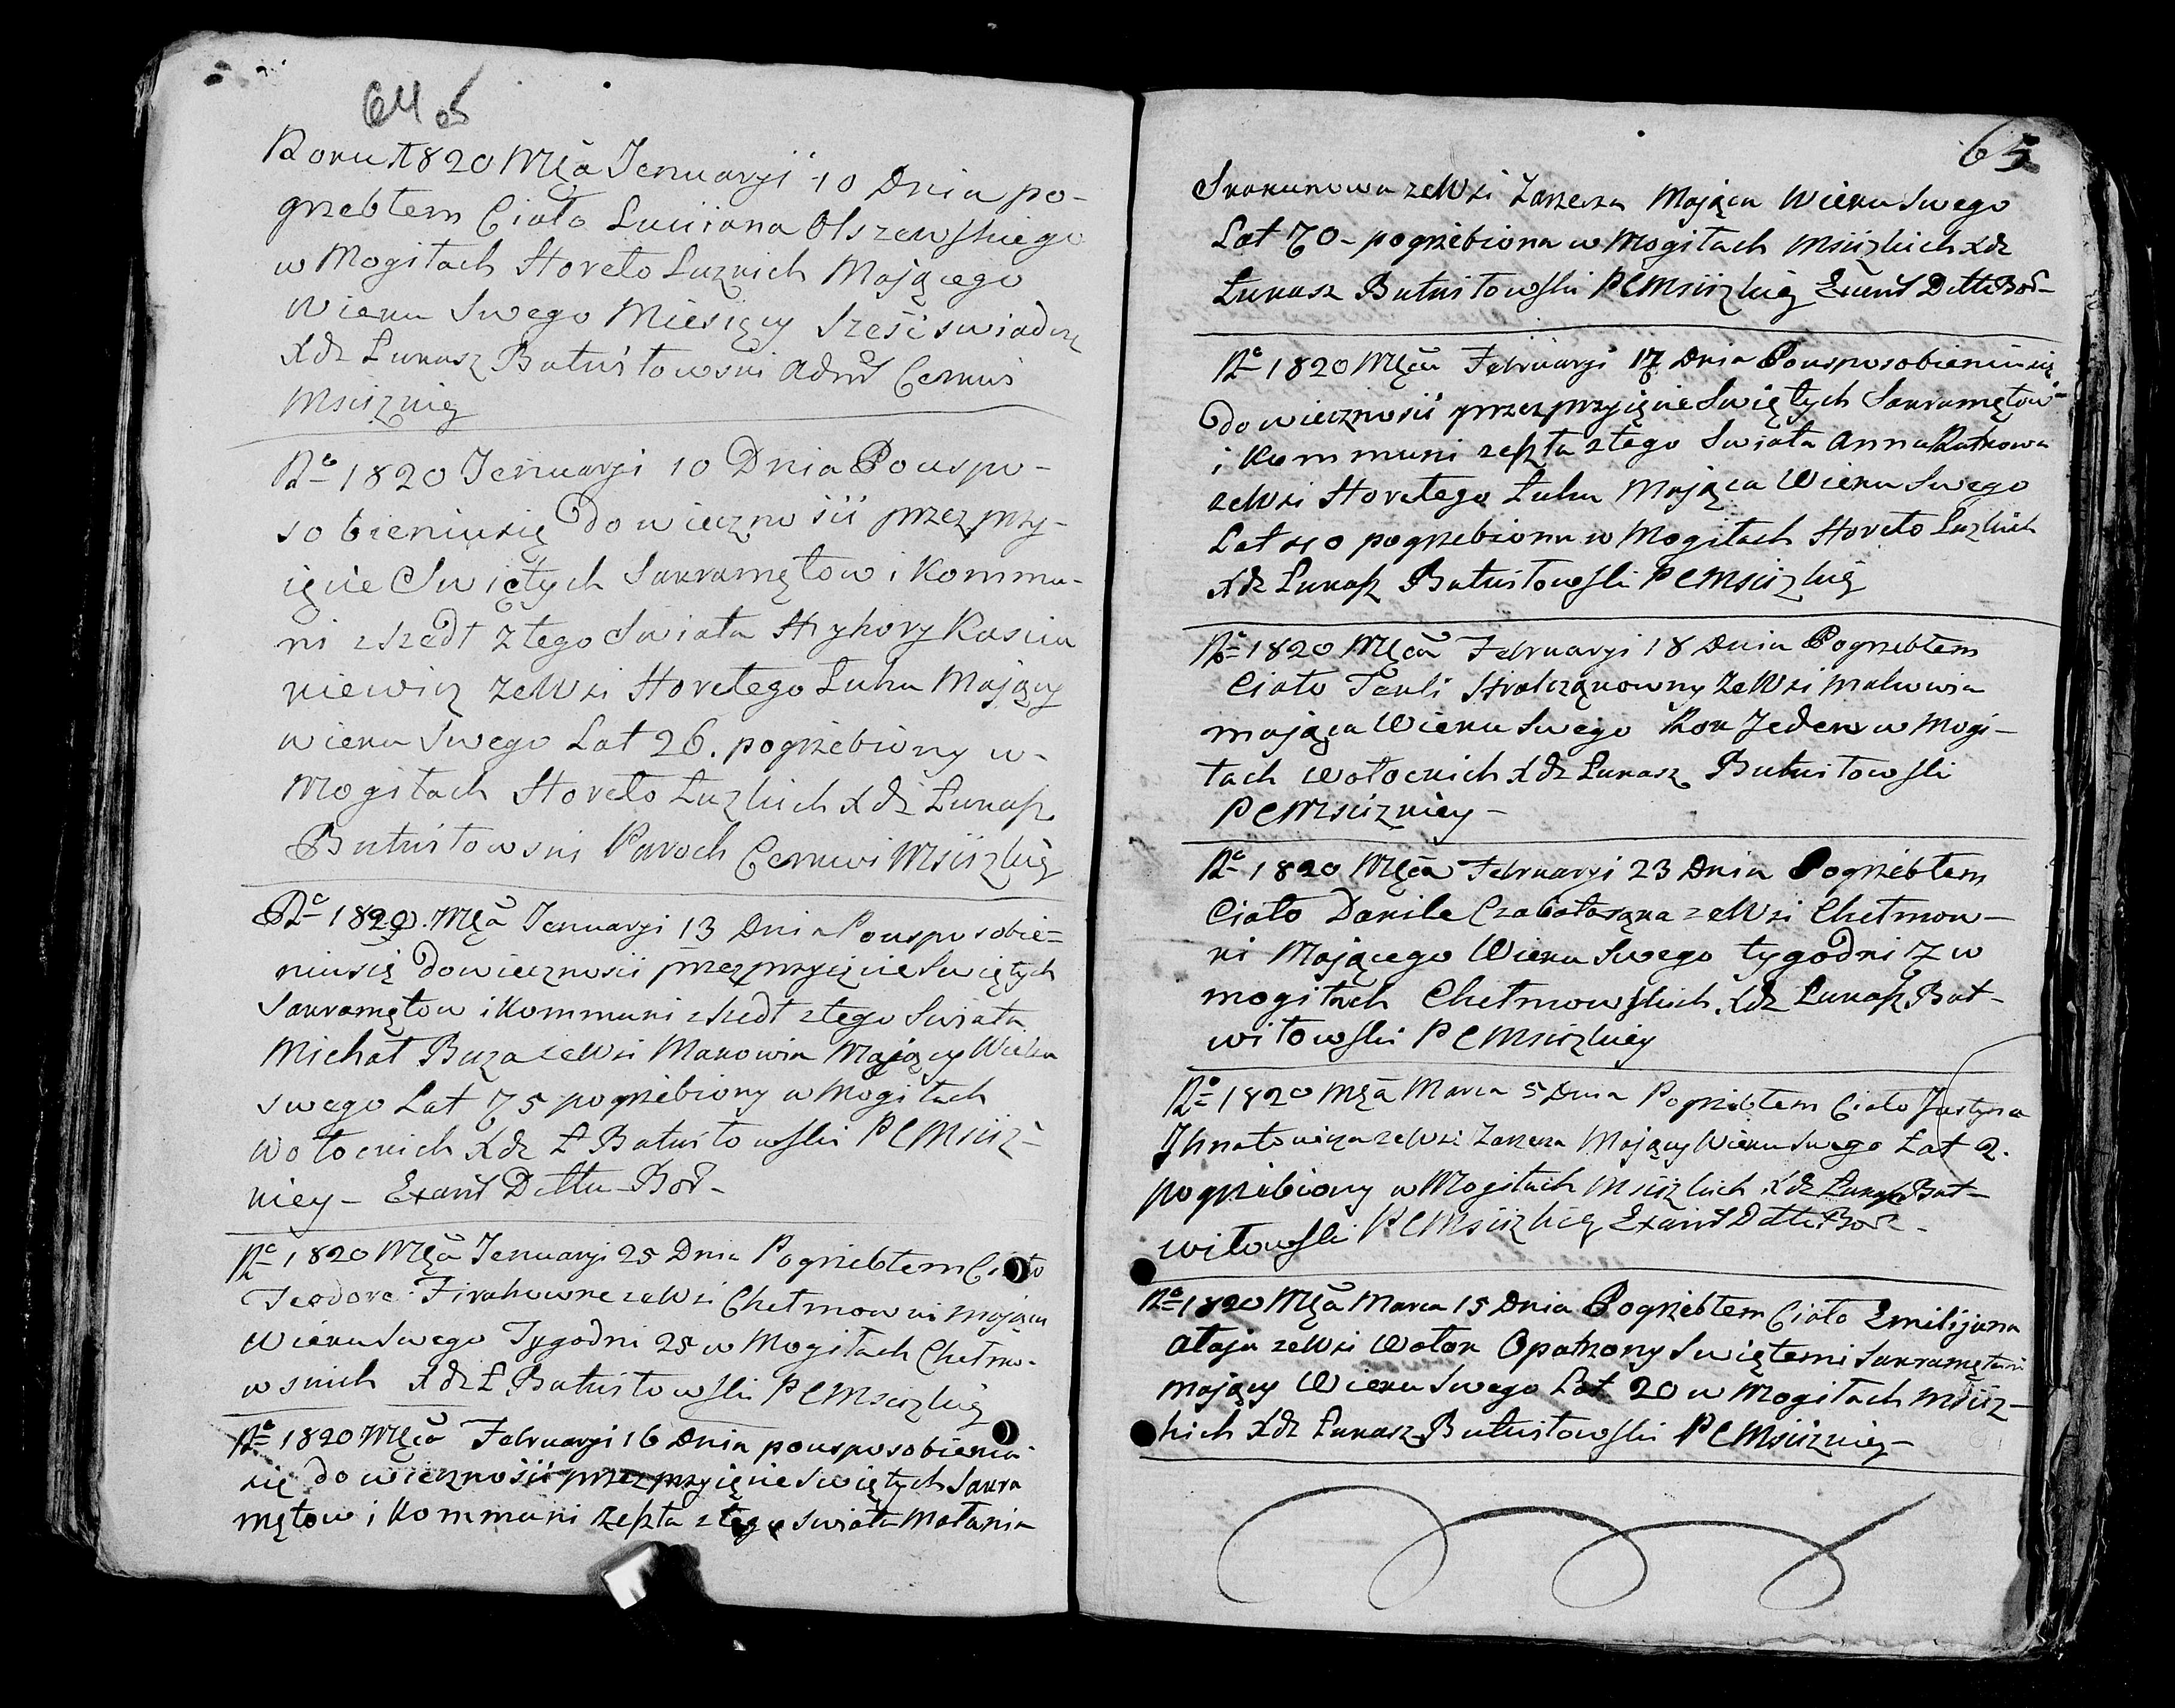 64 об
Roku 1820 Mċa Jenuaryi 10 Dnia po-
grzebłem Ciało Lucijana Olszewskiego
w Mogiłach Horeło Luzkich Mającego
Wieku Swego Miesięcy Sześć swiadczę
Xdz Łukasz Butwiłowski Adm̃ Cerkwi
Msciżkiey
Rᵒ 1820 Jenuaryi 10 Dnia Pouspo-
sobieniusię do wiecznosci przez przy-
ięcie Swiętych Sakramętow i Kommu-
ni zszedł z tego Swiata Hryhory Kascia
niewicz ze Wsi Horełego Łuhu Mający
wieku Swego Lat 26. pogrzebiony w-
Mogiłach Horeło Łuzkich Xdz Łukasz
Butwiłowski Paroch Cerkwi Msciżkiey
Rᵒ 1820. Mċa Jenuaryi 13 Dnia Pousposobie=
niusię do wiecznosci przez przyięcie Swiętych
Sakramętow i Kommuni zszedł z tego Swiata
Michał Buza ze Wsi Makowia Mający Wieku
swego Lat 75 pogrzebiony w Mogiłach
Wołockich Xdz Ł Butwiłowski P C Msciż-
kiey – Exam̃ Dttu Bor̃ -
Rᵒ 1820 Mċa Jenuaryi 25 Dnia Pogrzebłem Ciało
Teodore ze Wsi Chełmowki mając
Wieku Swego Tygodni 25 w Mogiłach Chełmo-
wskich Xdz Ł Butwiłowski P C Msciżkiey
Rᵒ 1820 Mċca Februaryi 16 Dnia pousposobieniu
się do wieznosci przez przyięcie Swiętych Sakra
mętow i Kommuni zeszła z tego swiata Małania
65
Skakunowa ze Wsi Zarzecza Mająca Wieku Swego
Lat 70 - pogrzebiona w Mogiłach Msciżkich Xdz
Łukasz Butwiłowski P C Msciżkiey Exam̃ Dttu Bor̃ -
Rᵒ 1820 Mċca Februaryi 17 Dnia Pousposobieniusię
do wiecznosci przez przyięcie Swiętych Sakramętow
i Kommuni zeszła z tego Swiata Anna
ze Wsi Horełego Łuhu Mająca Wieku Swego
Lat pogrzebiona w Mogiłach Horeło Łuzkich
Xdz Łukasz Butwiłowski P C Msciżkiey
Rᵒ 1820 Mċca Februaryi 18 Dnia Pogrzebłem
Ciało Tekli ze Wsi Makowia
mająca Wieku Swego Rok Jeden w Mogi-
łach Wołockich Xdz Łukasz Butwiłowski
P C Msciżkiey -
Rᵒ 1820 Mċca Februaryi 23 Dnia Pogrzebłem
Ciało Daniła ze Wsi Chełmow-
ki Mającego Wieku Swego tygodni 7 w
mogiłach Chełmowskich Xdz Łukasz But-
wiłowski P C Msciżkiey
Rᵒ 1820 Mċa Marca 5 Dnia Pogrzebłem Ciało Justyna
Ihnatowicza ze Wsi Zarzecza Mający Wieku Swego Lat 2.
pogrzebiony w Mogiłach Msciżkich Xdz Łukasz But-
wiłowski P C Msciżkiey Exam̃ Dttu Bor̃ -
Rᵒ 1820 Mċa Marca 15 Dnia Pogrzebłem Ciało Emilijana
Ałaja ze Wsi Wołok Opatrzony Swiętemi Sakramętami
mający Wieku Swego Lat 20 w Mogiłach Msciż-
kich Xdz Łukasz Butwiłowski P C Msciżkiey -